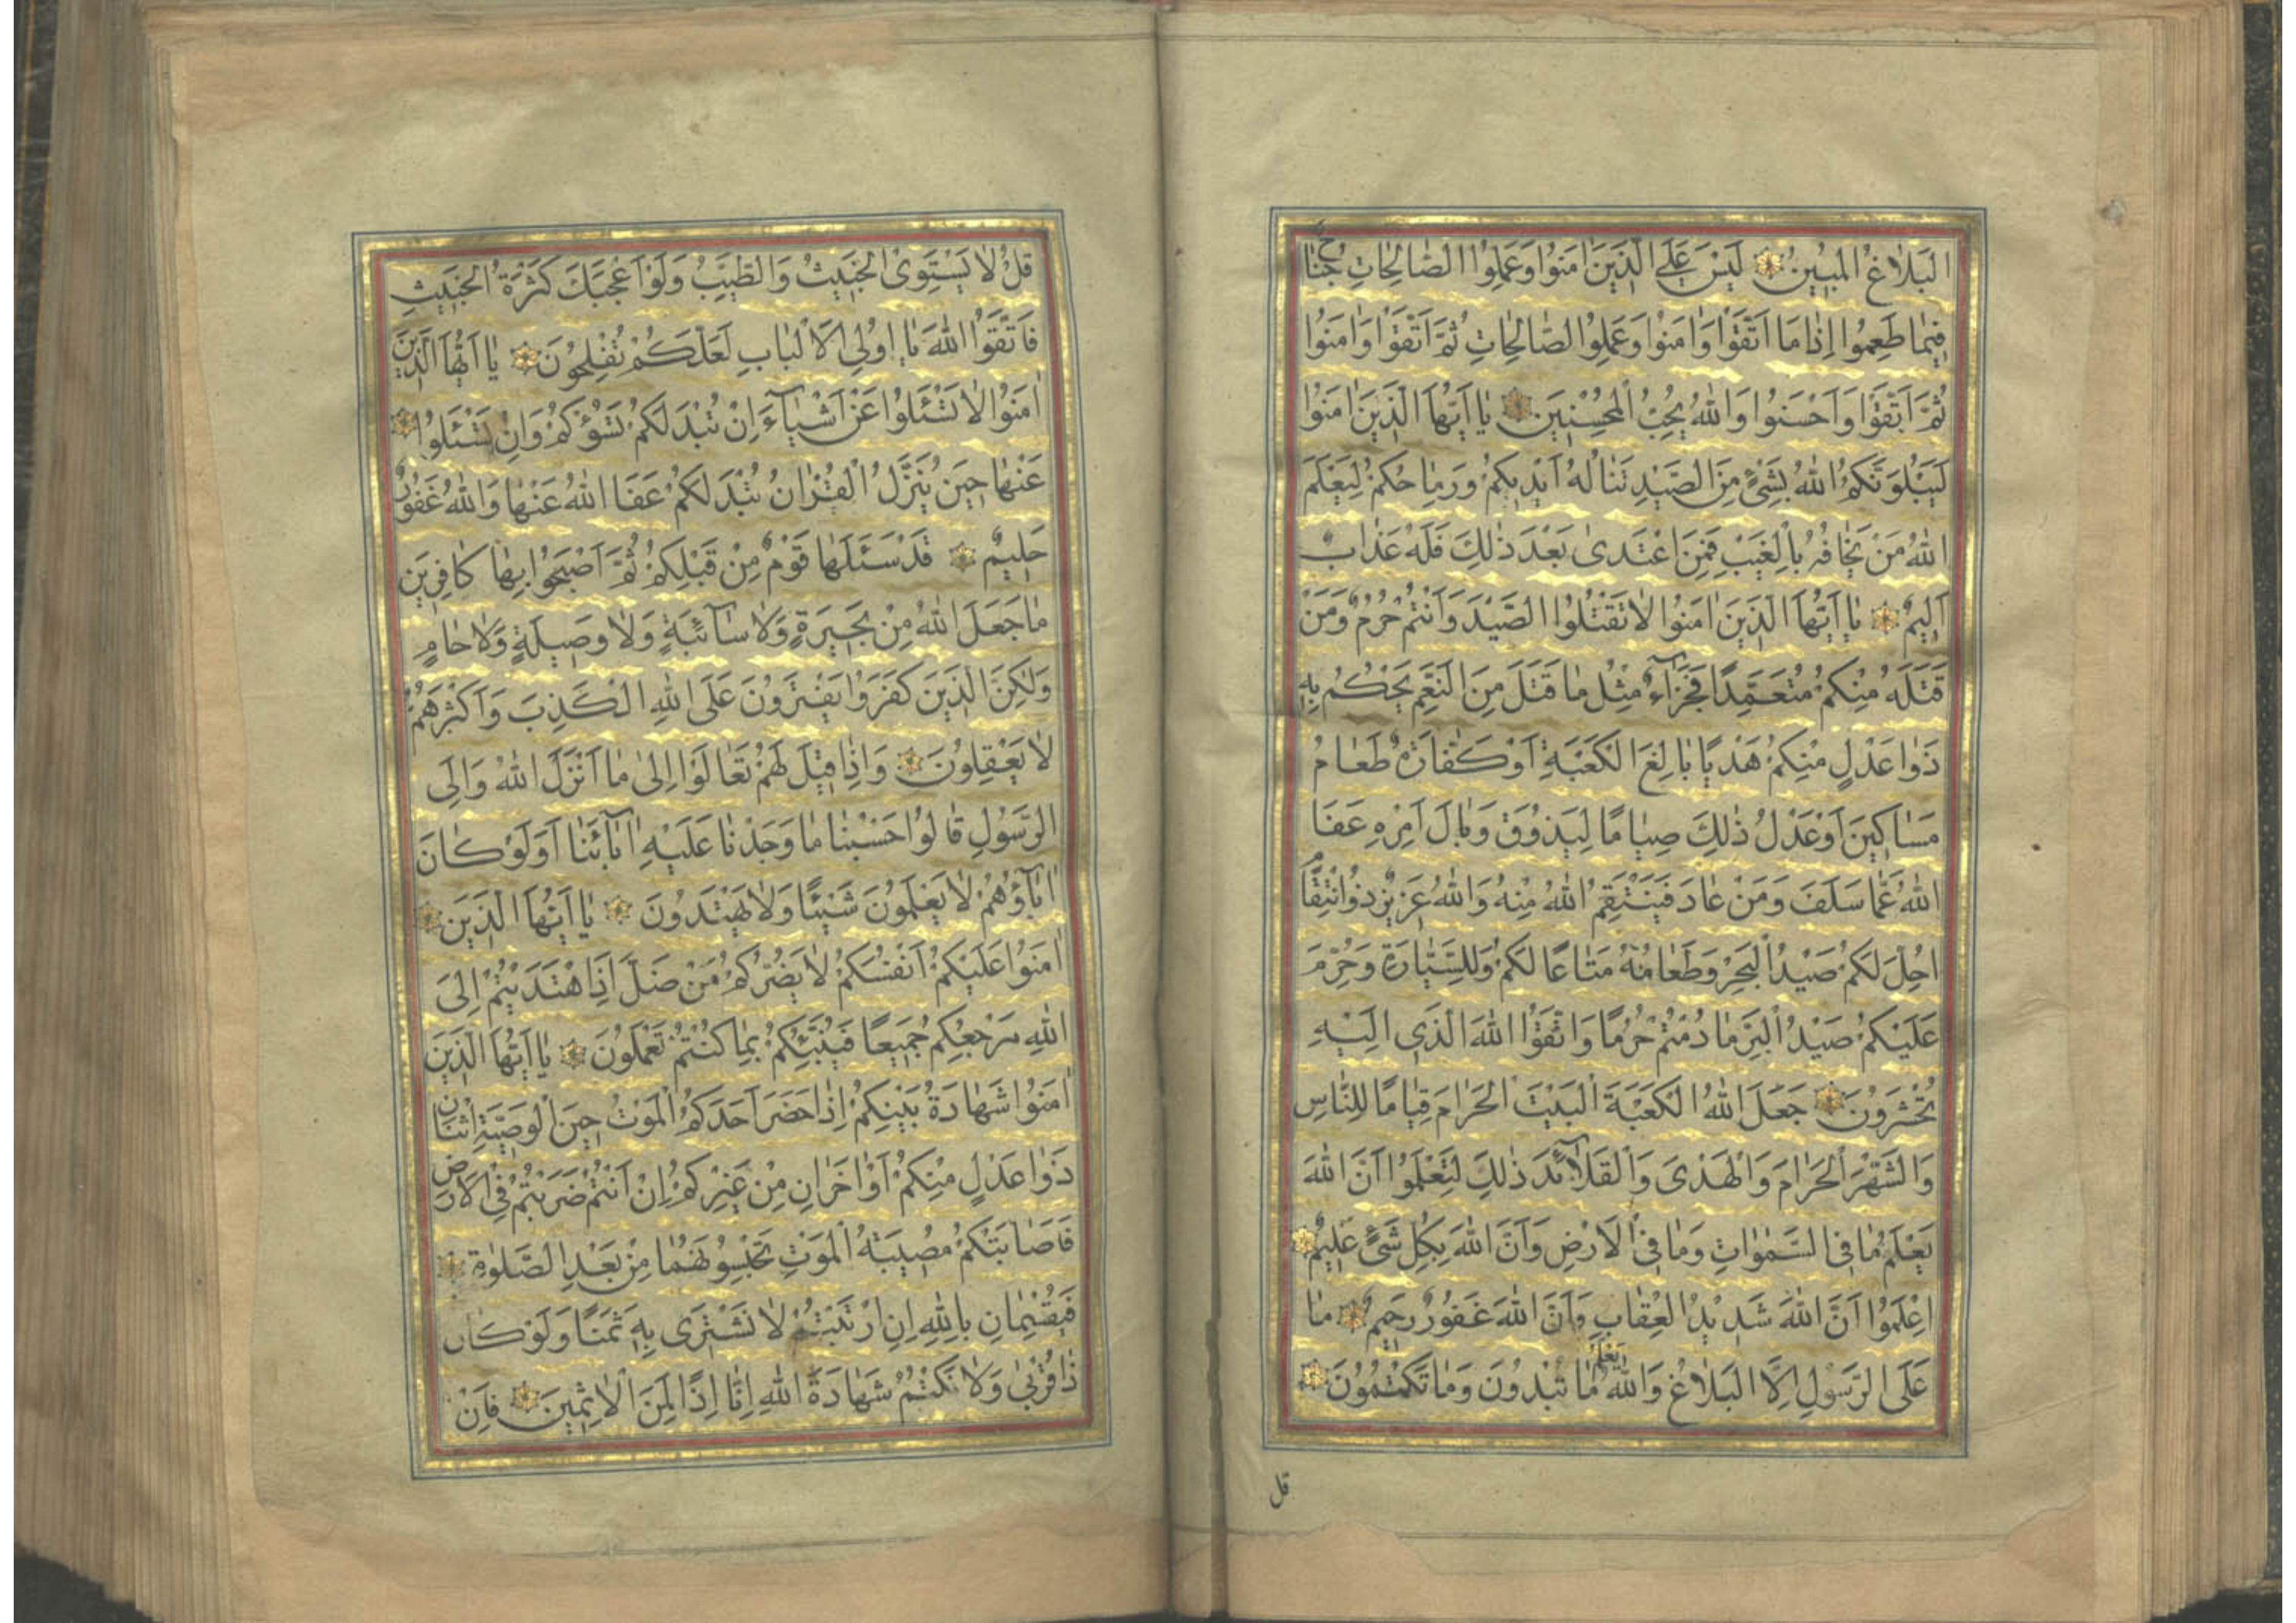 الْبَلَاغُ الْمُبِينُ لَيْسَ عَلَى الَّذِينَ اٰمَنُوا وَعَمِلُوا الصَّالِحَاتِ جُنَاحٌ
فِيمَا طَعِمُوا اِذَا مَا اتَّقَوْا وَاٰمَنُوا وَعَمِلُوا الصَّالِحَاتِ ثُمَّ اتَّقَوْا وَاٰمَنُوا
ثُمَّ اتَّقَوْا وَاَحْسَنُوا وَاللّٰهُ يُحِبُّ الْمُحْسِنِينَ يَا اَيُّهَا الَّذِينَ اٰمَنُوا
لَيَبْلُوَنَّكُمُ اللّٰهُ بِشَيْءٍ مِنَ الصَّيْدِ تَنَالُهُ اَيْدِيكُمْ وَرِمَاحُكُمْ لِيَعْلَمَ
اللّٰهُ مَنْ يَخَافُهُ بِالْغَيْبِ فَمَنِ اعْتَدَىٰ بَعْدَ ذٰلِكَ فَلَهُ عَذَابٌ
اَلِيمٌ يَا اَيُّهَا الَّذِينَ اٰمَنُوا لَا تَقْتُلُوا الصَّيْدَ وَاَنْتُمْ حُرُمٌ وَمَنْ
قَتَلَهُ مِنْكُمْ مُتَعَمِّدًا فَجَزَاۤءٌ مِثْلُ مَا قَتَلَ مِنَ النَّعَمِ يَحْكُمُ بِهِ
ذَوَا عَدْلٍ مِنْكُمْ هَدْيًا بَالِغَ الْكَعْبَةِ اَوْ كَفَّارَةٌ طَعَامُ
مَسَاكِينَ اَوْ عَدْلُ ذٰلِكَ صِيَامًا لِيَذُوقَ وَبَالَ اَمْرِهِ عَفَا
اللّٰهُ عَمَّا سَلَفَ وَمَنْ عَادَ فَيَنْتَقِمُ اللّٰهُ مِنْهُ وَاللّٰهُ عَزِيزٌ ذُو انْتِقَامٍ
اُحِلَّ لَكُمْ صَيْدُ الْبَحْرِ وَطَعَامُهُ مَتَاعًا لَكُمْ وَلِلسَّيَّارَةِ وَحُرِّمَ
عَلَيْكُمْ صَيْدُ الْبَرِّ مَا دُمْتُمْ حُرُمًا وَاتَّقُوا اللّٰهَ الَّذِي اِلَيْهِ
تُحْشَرُونَ جَعَلَ اللّٰهُ الْكَعْبَةَ الْبَيْتَ الْحَرَامَ قِيَامًا لِلنَّاسِ
وَالشَّهْرَ الْحَرَامَ وَالْهَدْىَ وَالْقَلَاۤئِدَ ذٰلِكَ لِتَعْلَمُوا اَنَّ اللّٰهَ
يَعْلَمُ مَا فِي السَّمٰوَاتِ وَمَا فِي الْاَرْضِ وَاَنَّ اللّٰهَ بِكُلِّ شَيْءٍ عَلِيمٌ
اِعْلَمُوا اَنَّ اللّٰهَ شَدِيدُ الْعِقَابِ وَاَنَّ اللّٰهَ غَفُورٌ رَحِيمٌ مَا
عَلَى الرَّسُولِ اِلَّا الْبَلَاغُ وَاللّٰهُ يَعْلَمُ مَا تُبْدُونَ وَمَا تَكْتُمُونَ
قل
قُلْ لَا يَسْتَوِى الْخَبِيثُ وَالطَّيِّبُ وَلَوْ اَعْجَبَكَ كَثْرَةُ الْخَبِيثِ
فَاتَّقُوا اللّٰهَ يَا اُولِي الْاَلْبَابِ لَعَلَّكُمْ تُفْلِحُونَ يَا اَيُّهَا الَّذِينَ
اٰمَنُوا لَا تَسْئَلُوا عَنْ اَشْيَاۤءَ اِنْ تُبْدَ لَكُمْ تَسُؤْكُمْ وَاِنْ تَسْئَلُوا
عَنْهَا حِينَ يُنَزَّلُ الْقُرْاٰنُ تُبْدَ لَكُمْ عَفَا اللّٰهُ عَنْهَا وَاللّٰهُ غَفُورٌ
حَلِيمٌ قَدْ سَئَلَهَا قَوْمٌ مِنْ قَبْلِكُمْ ثُمَّ اَصْبَحُوا بِهَا كَافِرِينَ
مَا جَعَلَ اللّٰهُ مِنْ بَحِيرَةٍ وَلَا سَاۤئِبَةٍ وَلَا وَصِيلَةٍ وَلَا حَامٍ
وَلٰكِنَّ الَّذِينَ كَفَرُوا يَفْتَرُونَ عَلَى اللّٰهِ الْكَذِبَ وَاَكْثَرُهُمْ
لَا يَعْقِلُونَ وَاِذَا قِيلَ لَهُمْ تَعَالَوْا اِلىٰ مَا اَنْزَلَ اللّٰهُ وَاِلَى
الرَّسُولِ قَالُوا حَسْبُنَا مَا وَجَدْنَا عَلَيْهِ اٰبَاۤئَنَا اَوَلَوْ كَانَ
اٰبَاۤؤُهُمْ لَا يَعْلَمُونَ شَيْئًا وَلَا يَهْتَدُونَ يَا اَيُّهَا الَّذِينَ
اٰمَنُوا عَلَيْكُمْ اَنْفُسَكُمْ لَا يَضُرُّكُمْ مَنْ ضَلَّ اِذَا اهْتَدَيْتُمْ اِلَى
اللّٰهِ مَرْجِعُكُمْ جَمِيعًا فَيُنَبِّئُكُمْ بِمَا كُنْتُمْ تَعْمَلُونَ يَا اَيُّهَا الَّذِينَ
اٰمَنُوا شَهَادَةُ بَيْنِكُمْ اِذَا حَضَرَ اَحَدَكُمُ الْمَوْتُ حِينَ الْوَصِيَّةِ اثْنَانِ
ذَوَا عَدْلٍ مِنْكُمْ اَوْ اٰخَرَانِ مِنْ غَيْرِكُمْ اِنْ اَنْتُمْ ضَرَبْتُمْ فِي الْاَرْضِ
فَاَصَابَتْكُمْ مُصِيبَةُ الْمَوْتِ تَحْبِسُونَهُمَا مِنْ بَعْدِ الصَّلٰوةِ
فَيُقْسِمَانِ بِاللّٰهِ اِنِ ارْتَبْتُمْ لَا نَشْتَرِى بِهِ ثَمَنًا وَلَوْ كَانَ
ذَا قُرْبىٰ وَلَا نَكْتُمُ شَهَادَةَ اللّٰهِ اِنَّا اِذًا لَمِنَ الْاٰثِمِينَ فَاِنْ